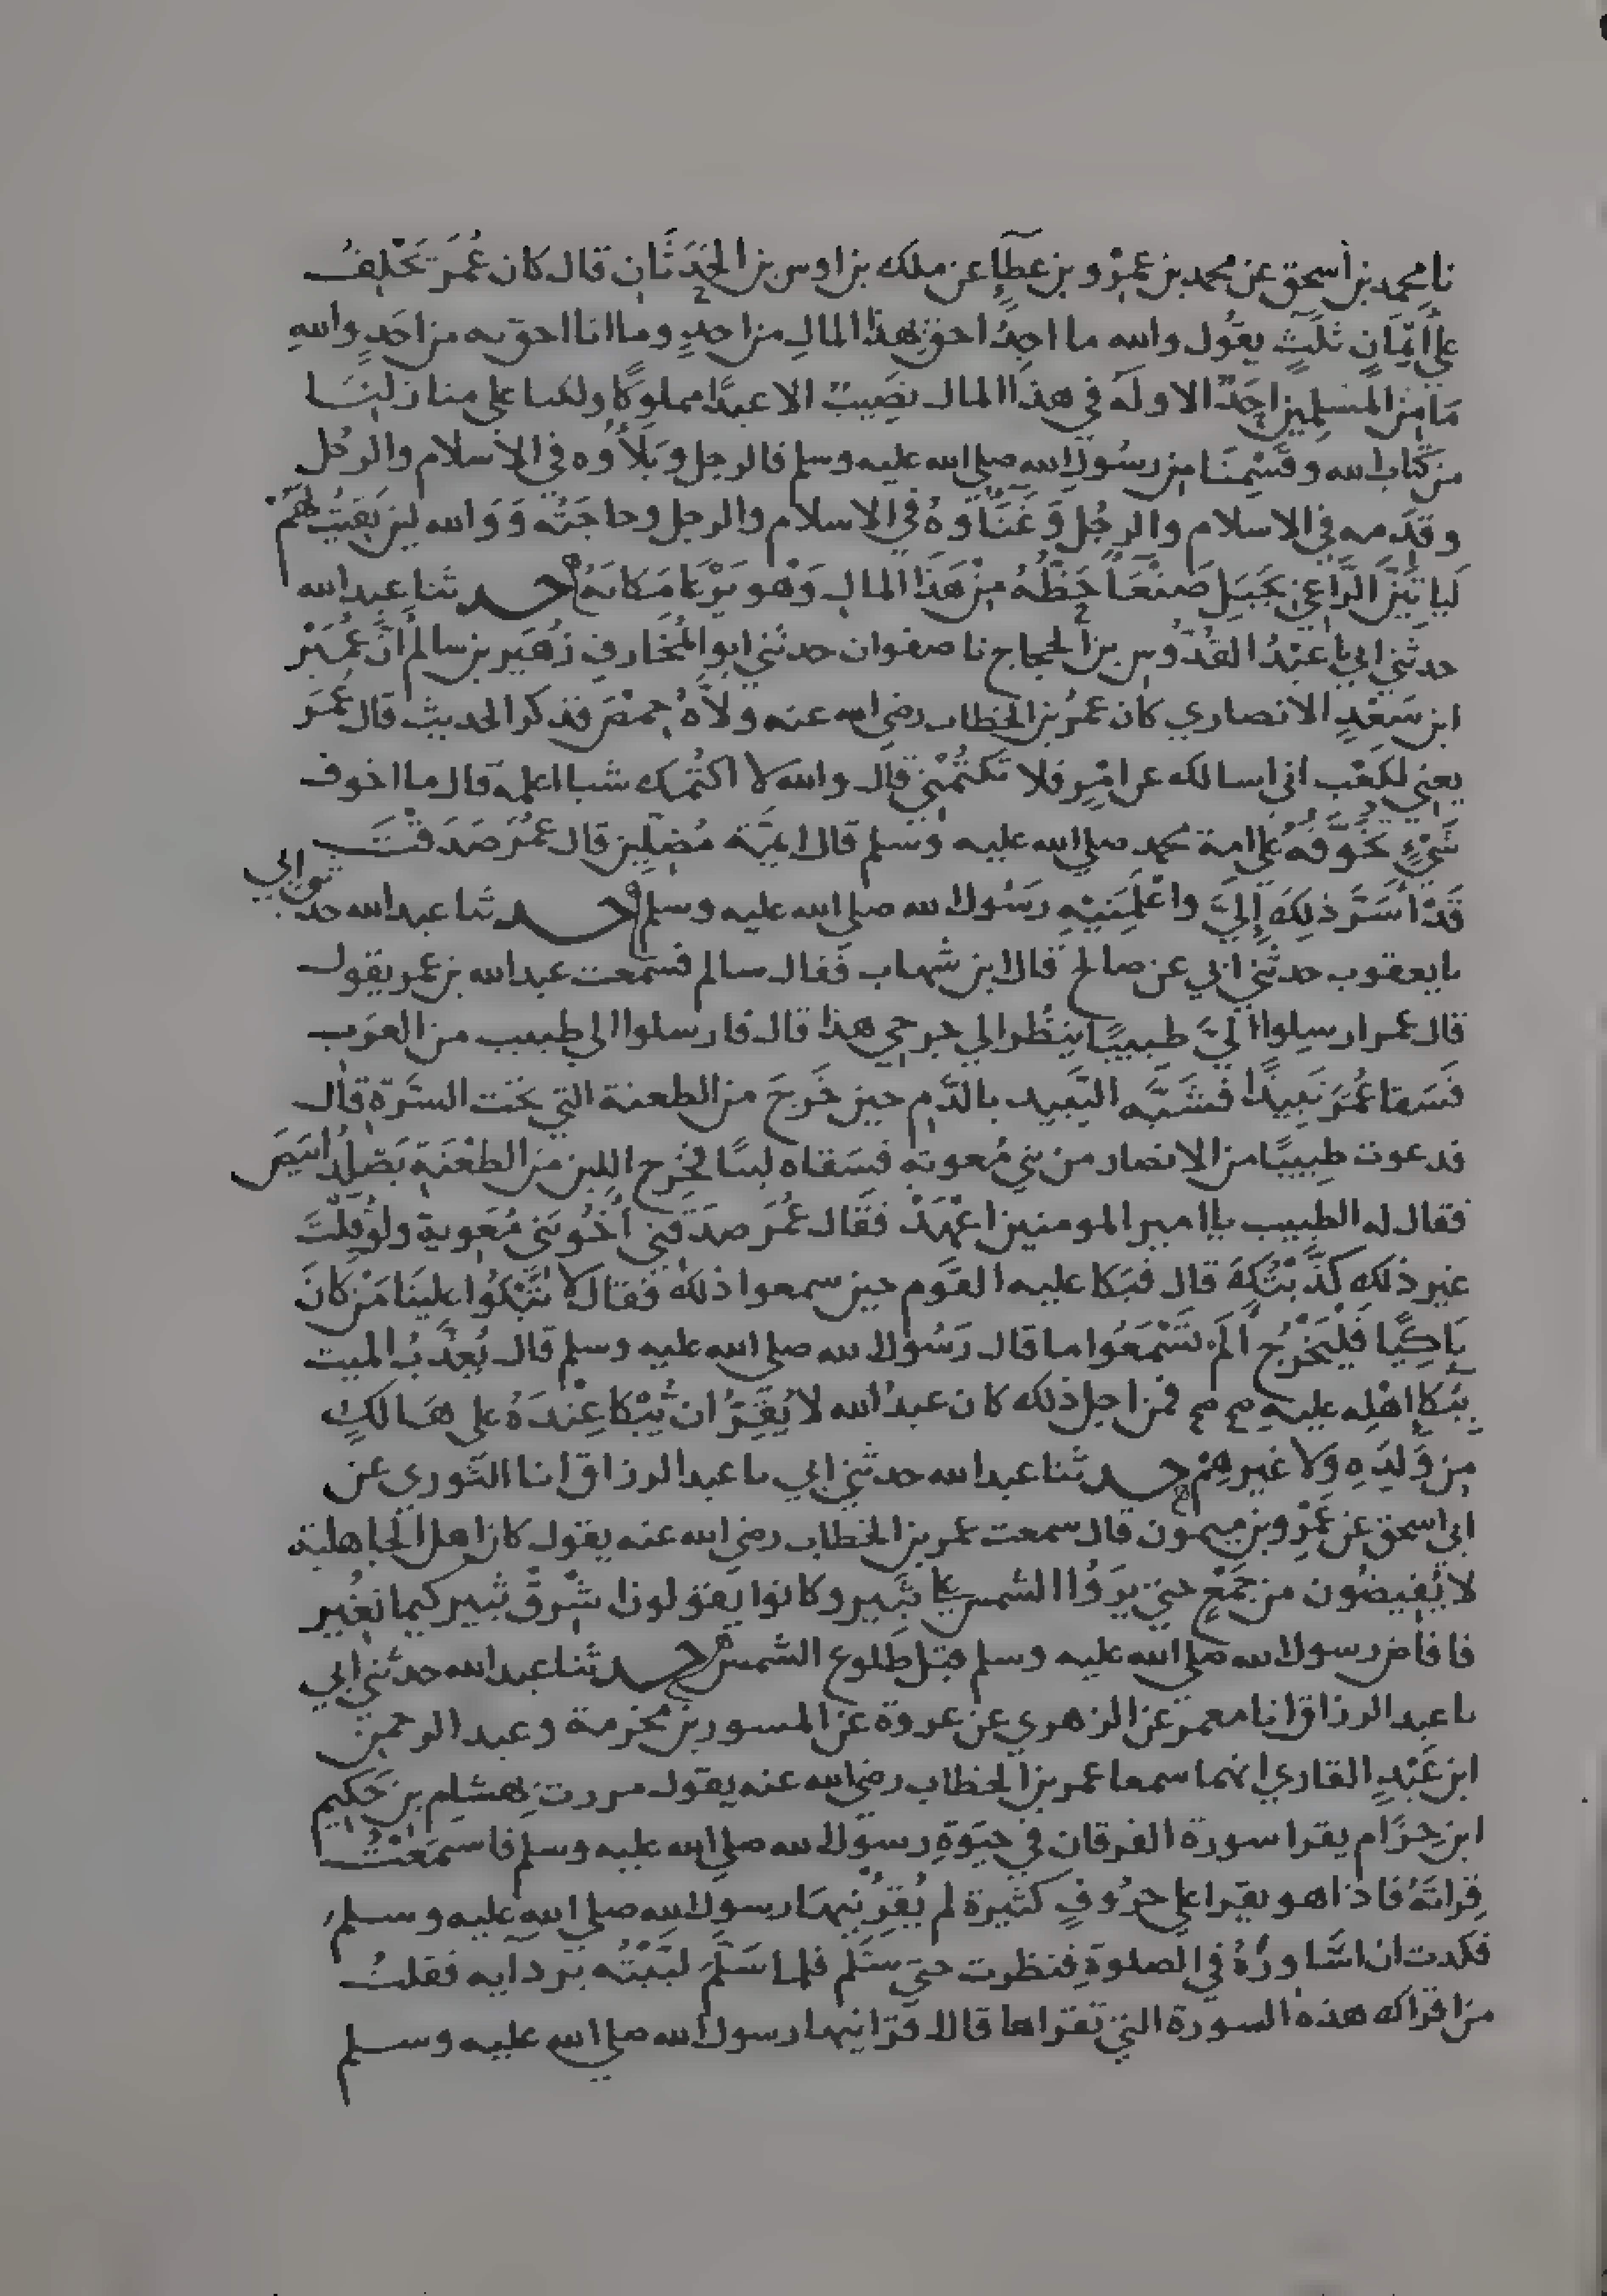 نا محمد بن اسحق عن محمد بن عمرو بن عطآء عن ملك بن اوس بن الحدثان قال كان عُمَر يَحْلِفُ
على اَيْمَانٍ ثلثٍ يقُول والله ما احدٌ احق بهذا المالِ من احدٍ وما انا احق به من احَدٍ واللهِ
مَا مِن المسْلِمِين اَحَدٌ الا وله في هذا المال نَصِيبٌ الا عبدًا مملوكًا ولكنا على منازلِنَا
من كتاب الله وقَسْمِنَا مِن رسُول الله صلى الله عليه وسلم فالرجل وبَلَاؤُه في الاسلام والرجُل
وقدَمه في الاسلام والرجُل وَغَنَاؤهُ في الاسلام والرجل وحاجَتُه وَوَالله لين بَقيتُ لهُمْ
لَياتِيَنّ الرَّاعِيَ بجَبَلِ صَنْعَا حَظُّهُ مِنْ هَذَا المالِ وَهُو يَرْعَا مَكانَهُ حدثنا عبد الله
حدثني ابي نا عَبْدُ القُدُّوس بن الحجاج نا صفوان حدثني ابو المُخَارق زُهَير بن سالم انَّ عُمَيْر
ابن سَعْدٍ الانصاري كان عمرُ بن الخطاب رضي الله عنه ولَّاهُ حِمْصَ فذكر الحديث قال عُمَر
يعني لكَعْب اني اسالك عن امْرٍ فلا تَكْتُمْنِي قال والله لا اكتُمك شيا اعلمه قال ما اخوف
شَيْءٍ تَخَوَّفُهُ على امة محمد صلى الله عليه وسَلم قال ايمَّة مُضِلِّين قال عُمَرُ صَدَقْتَ
قَدْ اَسَرَّ ذلِكَ اِلَيَّ واعْلَمَنِيْهِ رَسُول الله صلى الله عليه وسلم حدثنا عبد الله حدثني ابي
نا يعقوب حدثني ابي عن صالح قال ابن شهاب فقال سالم فسَمعت عبد الله بن عمر يقول
قال عمر ارسِلوا اليَّ طبيبًا ينظُر الى جرحي هذا قال فارسلوا الى طبيب من العرَب
فَسَقا عُمَرَ نَبِيذًا فشَبَّه النَّبيذ بالدَّم حين خَرجَ من الطعنة التي تحت السّرّةِ قال
فدعوت طبِيبًا من الانصار من بني مُعوية فسَقاه لبنًا فخرج اللبن من الطعْنَةِ يَصْلِدُ ابيَضَ
فقال له الطبيب يا امير المومنين اعْهَدْ فقال عُمَر صدَقني اَخُو بَنِي مُعَوية ولو قلْتَ
غير ذلك كذَّبْتُكَ قال فبَكا عليه القَوم حين سمعوا ذلك فقال لا تَبْكُوا علينَا مَنْ كانَ
بَاكِيًا فَلْيَخْرُجْ اَلَم تَسْمَعُوا ما قال رَسُول الله صلى الله عليه وسلم قال يُعَذَّبُ الميت
بِبُكاءِ اهْلِه عليهِ فمن اجل ذلك كان عبدُ الله لا يُقِرُّ ان يُبْكا عِنْدَهُ على هَالكٍ
مِن وَّلَدِهِ وَلا غيرِهِمْ حدثنا عبد الله حدثني ابي نا عبد الرزاق انا الثوري عن
ابي اسحق عن عَمْرِو بن ميمون قال سمعت عمر بن الخطاب رضي الله عنه يقول كان اهل الجاهلية
لا يُفيضُون من جَمْعٍ حتي يَرَوُا الشمس علي ثَبِير وكانوا يقولون اشْرِقْ ثبِير كيما نغُير
فافاض رسول الله صلى الله عليه وسلم قبل طلوع الشمس حدثنا عبد الله حدثني ابي
نا عبد الرزاق انا معمر عن الزهري عن عروة عن المسور بن مخرمة وعبد الرحمن
ابن عَبْدٍ القاري انهما سمعا عمر بن الخطاب رضي الله عنه يقول مررت بهشام بن حَكِيم
ابن حِزَام يقرا سورة الفرقان في حيَوةِ رسول الله صلى الله عليه وسلم فاستمَعْتُ
قِراتَهُ فاذا هو يقرا على حرُوفٍ كثيرة لم يُقرِئنِيهَا رسول الله صلى الله عليه وسلم
فكدت ان اسَاورُهُ في الصلوةِ فنظرت حتى سَلَّم فلما سَلَّمَ لبَّبْتُه بردآيه فقلتُ
من اقراك هذه السورة التي تقراها قال اقرانيها رسول الله صلى الله عليه وسلم